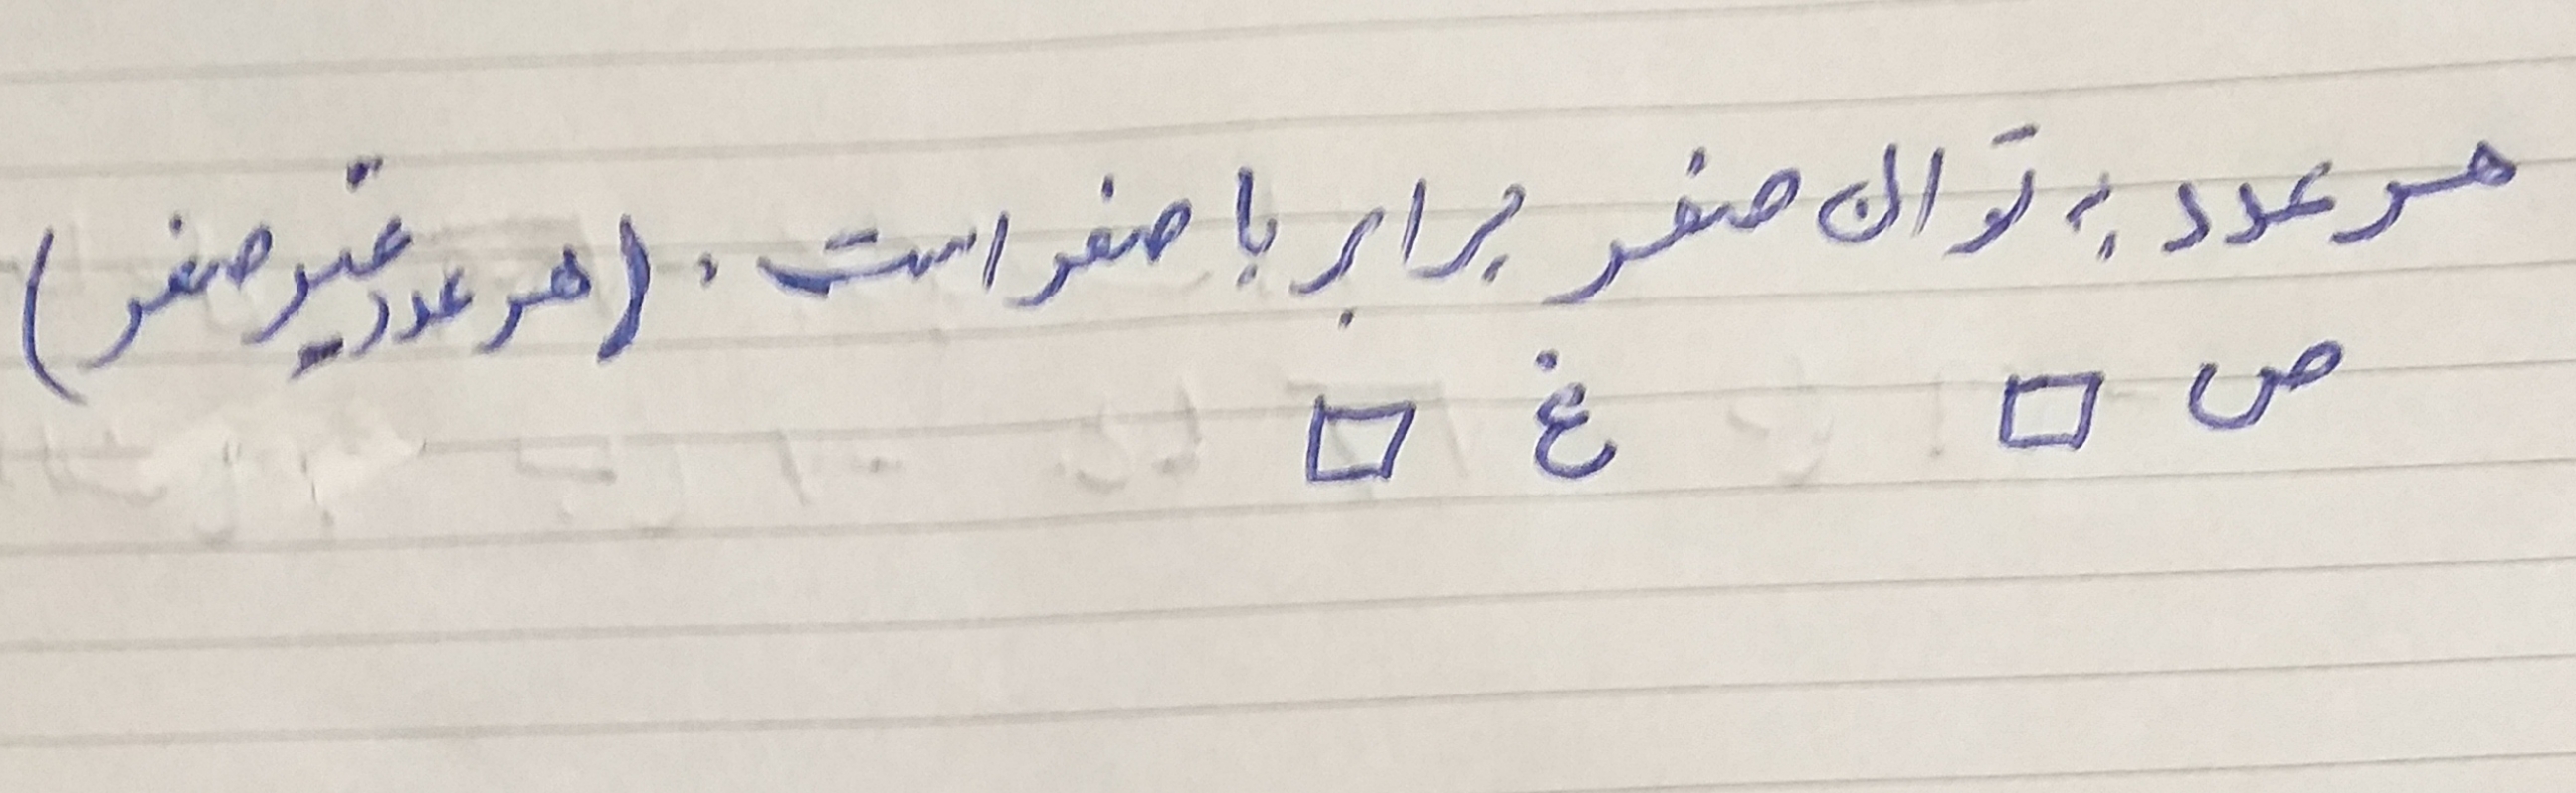 هر عدد به توان صفر برابر با صفر است. (هر عدد غیر صفر)
ص □ غ □